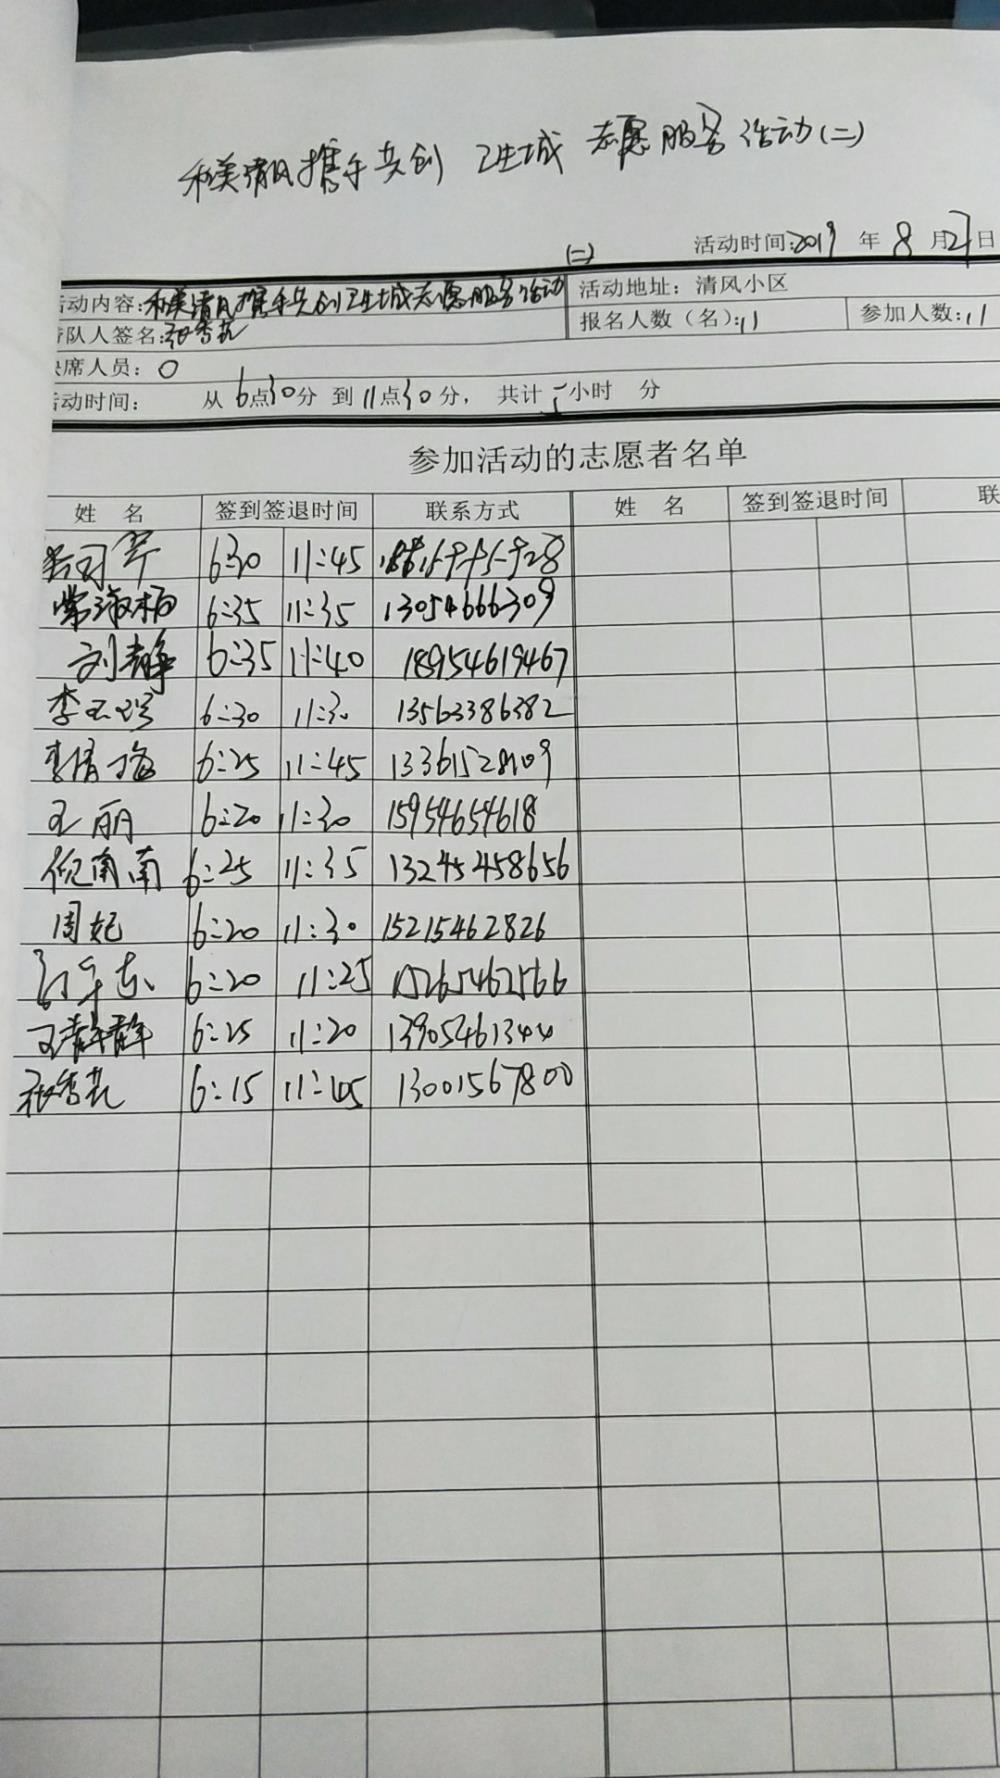 和美清风携手共创 卫生城 志愿服务活动(二)
活动时间:2019 年 8 月21日
(二)
活动内容:和美清风携手共创卫生城志愿服务活动 活动地址：清风小区
队人签名:张秀花 报名人数（名）:11 参加人数:11
席人员：0
活动时间： 从 6点30分 到 11点30分， 共计 5小时 分
参加活动的志愿者名单
姓 名 签到签退时间 联系方式 姓 名 签到签退时间 联
6:30 11:45
常淑梅 6:35 11:35 13054666309
刘静 6:35 11:40 18954619467
李玉珍 6:30 11:30 13563386382
李倩梅 6:25 11:45
王丽 6:20 11:30 15954654618
倪南南 6:25 11:35 13245458656
周妃 6:20 11:30 15215462826
6:20 11:25 15265462566
王静静 6:25 11:20 13905461344
张秀花 6:15 11:45 13001567800